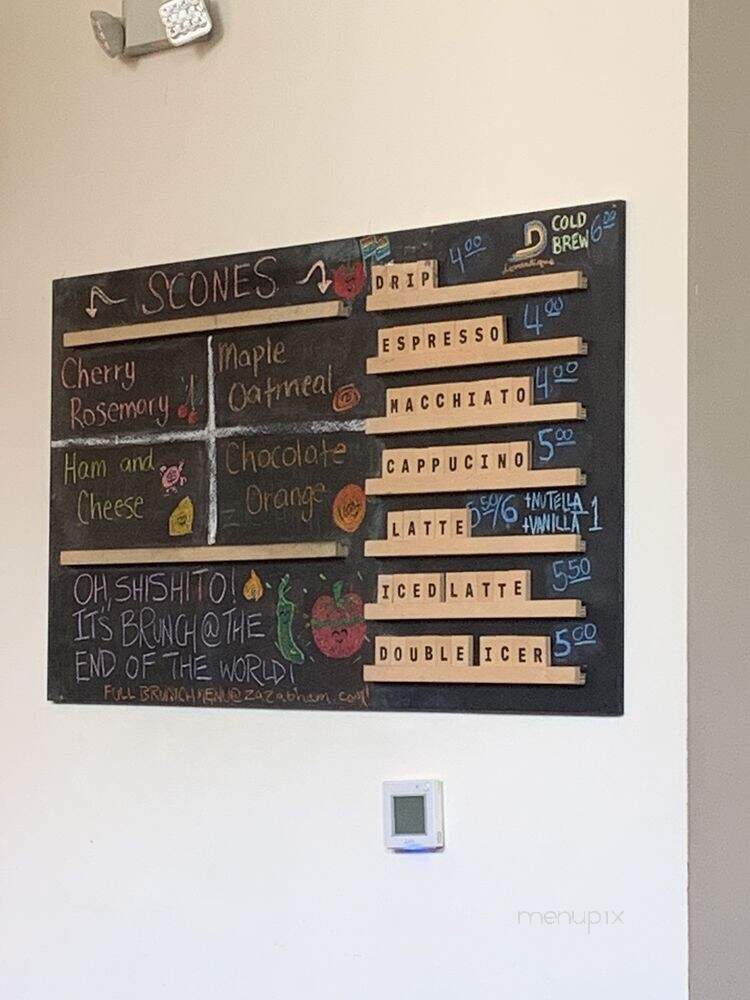 SCONES
Cherry
Rosemary
Maple
Oatmeal
Ham and
Cheese
Chocolate
Orange
OH, SHISHITO!
IT'S BRUNCH @ THE
END OF THE WORLD!
FULL BRUNCH MENU @ zazabham.com!
DRIP 4.00
COLD
BREW 6.00
ESPRESSO 4.00
MACCHIATO 4.00
CAPPUCINO 5.00
LATTE 5.50/6 +NUTELLA
+VANILLA 1
ICED LATTE 5.50
DOUBLE ICER 5.00
menupix